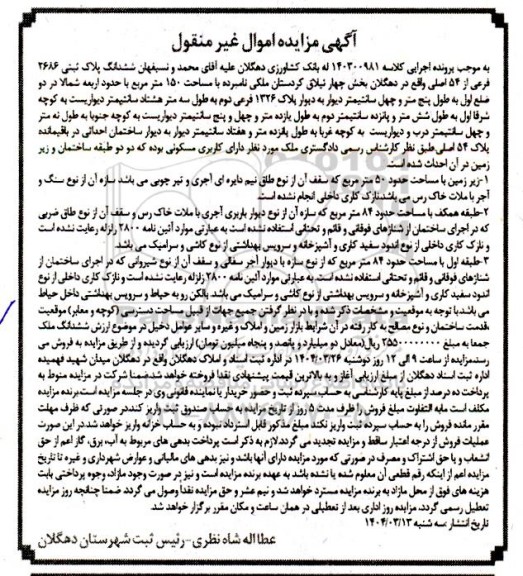 آگهی مزایده اموال غیر منقول
به موجب پرونده اجرایی کلاسه ۱۴۰۳۰۰۹۸۱ له بانک کشاورزی دهگلان علیه آقای محمد و نسیفهان ششدانگ پلاک ثبتی ۲۶۸۶
فرعی از ۵۴ اصلی واقع در دهگلان بخش چهار تیلاق کردستان ملکی نامبرده با مساحت ۱۵۰ متر مربع با حدود اربعه شمالا در دو
ضلع اول به طول پنج متر و چهل سانتیمتر دیوار به دیوار پلاک ۱۳۲۶ فرعی دوم به طول سه متر هشتاد سانتیمتر دیواریست به کوچه
شرقا اول به طول شش متر و پانزده سانتیمتر دوم به طول یازده متر و چهل و پنج سانتیمتر دیواریست به کوچه جنوبا به طول نه متر
و چهل سانتیمتر درب و دیواریست به کوچه غربا به طول پانزده متر و هفتاد سانتیمتر دیوار به دیوار ساختمان احداثی در باقیمانده
پلاک ۵۴ اصلی طبق نظر کارشناس رسمی دادگستری ملک مورد نظر دارای کاربری مسکونی بوده که دو دو طبقه ساختمان و زیر
زمین در آن احداث شده است
۱-زیر زمین با مساحت حدود ۵۰ متر مربع که سقف آن از نوع طاق نیم دایره ای آجری و تیر چوبی می باشد سازه آن از نوع سنگ و
آجر با ملات خاک رس می باشد نازک کاری داخلی انجام نشده است
۲-طبقه همکف با مساحت حدود ۸۴ متر مربع که سازه آن از نوع دیوار باربری آجری با ملات خاک رس و سقف آن از نوع طاق ضربی
که در اجرای ساختمان از شناژهای فوقانی و قائم و تحتانی استفاده نشده است به عبارتی موارد آئین نامه 2800 زلزله رعایت نشده است
و نازک کاری داخلی از نوع اندود سفید کاری و آشپزخانه و سرویس بهداشتی از نوع کاشی و سرامیک می باشد.
۳-طبقه اول با مساحت حدود ۸۴ متر مربع که از نوع سازه با دیوار آجر سفالی و سقف آن از نوع شیروانی که در اجرای ساختمان از
شناژهای فوقانی و قائم و تحتانی استفاده نشده است. به عبارتی موارد آئین نامه 2800 زلزله رعایت نشده است و نازک کاری داخلی از نوع
اندود سفید کاری و آشپزخانه و سرویس بهداشتی از نوع کاشی و سرامیک می باشد بالکن رو به حیاط و سرویس بهداشتی داخل حیاط
می باشد با توجه به موقعیت و مشخصات ذکر شده و با در نظر گرفتن جمیع جهات از قبیل مساحت دسترسی (کوچه و معابر) موقعیت
،قدمت ساختمان و نوع مصالح به کار رفته در آن شرایط بازار زمین و املاک و غیره و سایر عوامل دخیل در موضوع ارزش ششدانگ ملک
جمعا به مبلغ ۲۵۵۰۰۰۰۰۰۰۰ ریال(معادل دو میلیارد و پانصد و پنجاه میلیون تومان) ارزیابی گردیده و از طریق مزایده به فروش می
رسد مزایده از ساعت ۹ الی ۱۲ روز دوشنبه ۱۴۰۴/۰۳/۲۶ در اداره ثبت اسناد و املاک دهگلان واقع در دهگلان میدان شهید فهمیده
اداره ثبت اسناد دهگلان از مبلغ ارزیابی آغاز و به بالاترین قیمت پیشنهادی نقدا فروخته خواهد شد ضمنا شرکت در مزایده منوط به
پرداخت ده درصد از مبلغ پایه کارشناسی به حساب سپرده ثبت و حضور خریدار یا نماینده قانونی وی در جلسه مزایده است برنده مزایده
مکلف است مابه التفاوت مبلغ فروش را ظرف مدت ۵ روز از تاریخ مزایده به حساب صندوق ثبت واریز کند در صورتی که ظرف مهلت
مقرر مانده فروش را به حساب سپرده ثبت واریز نکند مبلغ مذکور قابل استرداد نبوده و به حساب خزانه واریز خواهد شد در این صورت
عملیات فروش از درجه اعتبار ساقط و مزایده تجدید می گردد لازم به ذکر است پرداخت بدهی های مربوط به آب، برق، گاز اعم از حق
انشعاب و یا حق اشتراک و مصرف در صورتی که مورد مزایده دارای آنها باشد و نیز بدهی های مالیاتی و عوارض شهرداری و غیره تا تاریخ
مزایده اعم از اینکه رقم قطعی آن معلوم شده یا نشده باشد به عهده برنده مزایده است و نیز در صورت وجود مازاد، وجوه پرداختی بابت
هزینه های فوق از محل مازاد به برنده مزایده مسترد خواهد شد و نیم عشر و حق مزایده نقدا وصول می گردد ضمنا چنانچه روز مزایده
تعطیل رسمی گردد، مزایده روز اداری بعد از تعطیلی در همان ساعت و مکان مقرر برگزار خواهد شد.
تاریخ انتشار :سه شنبه ۱۴۰۴/۰۳/۱۳
عطااله شاه نظری-رئیس ثبت شهرستان دهگلان